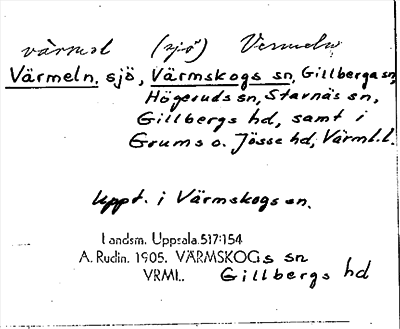 värmel (sjö) Vermeln
Värmeln, sjö, Värmskogs sn, Gillberga sn,
Högeruds sn, Stavnäs sn,
Gillbergs hd, samt i
Grums o. Jösse hd, Värml. l.
Uppt. i Värmskogs sn.
Landsm. Uppsala 517:154
A. Rudin. 1905. VÄRMSKOGs sn
VRML. Gillbergs hd